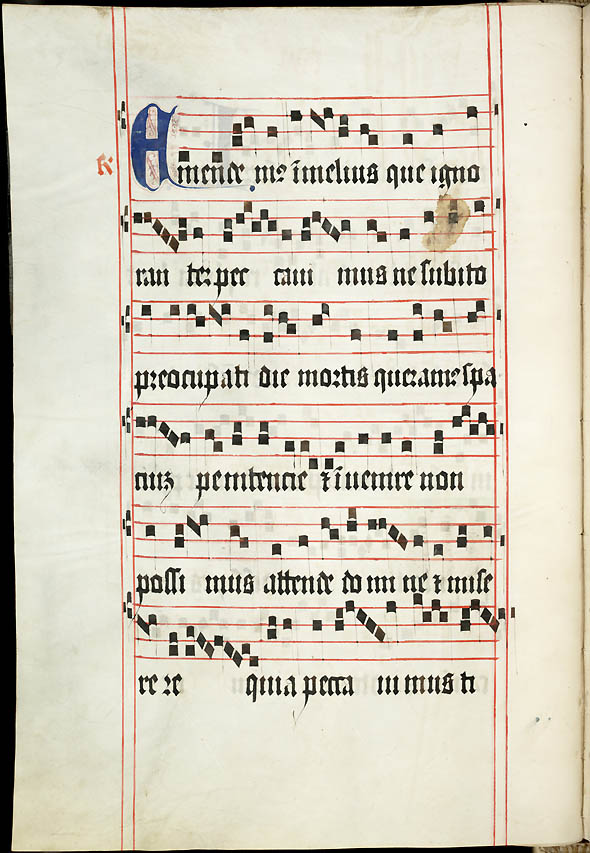 R
Emende mꝰ ī melius que igno
ran ter pec caui mus ne subito
preocupati die mortis queramꝰ spa
ciuꝫ penitencie ⁊ īuenire non
possi mus attende do mi ne ⁊ mise
re re quia pecca ui mus ti